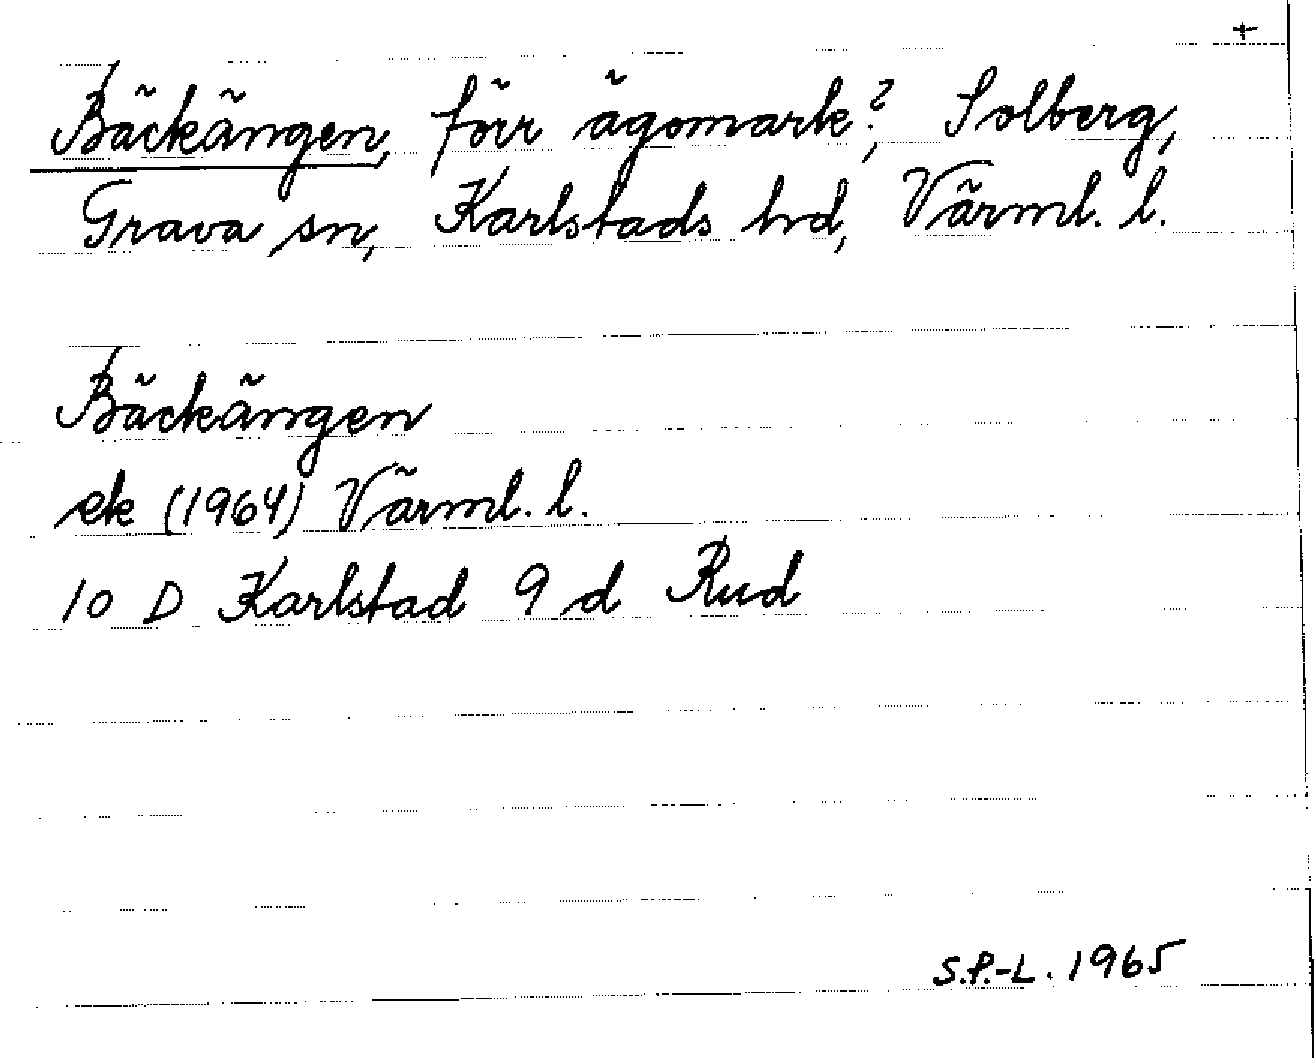 +
Bäckängen, förr ägomark?, Solberg,
Grava sn, Karlstads hd, Värml. l.
Bäckängen
ek (1964) Värml. l.
10 D Karlstad 9 d Rud
S.P.-L. 1965